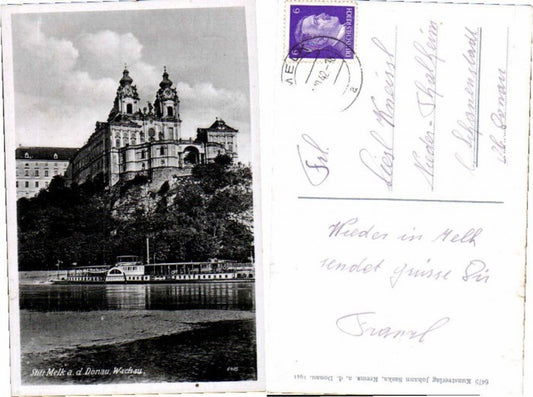 Stift Melk a. d. Donau, Wachau.
6
6
MELK
a
Frl.
Liesl Kneissl
Nieder-Thalheim
Wieder in Melk
sendet Grüsse Dir
Franzl
6475 Kunstverlag Johann Saska, Krems a. d. Donau, 1941